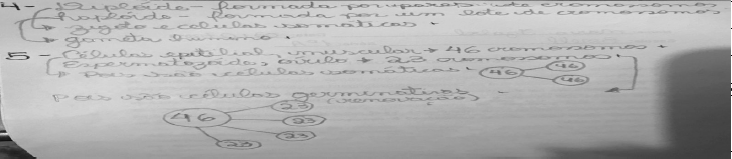 4- Diploide - formada por pares de cromossomos
haploide - formada por um lote de cromossomos
↳ zigoto e células somáticas.
↳ gameta humano.
5- Células epitelial, muscular → 46 cromossomos.
Espermatozoide, óvulo → 23 cromossomos.
↳ Pois são células somáticas. 46 46 46
Pois são células germinativas.
(renovação)
46 23 23 23 23